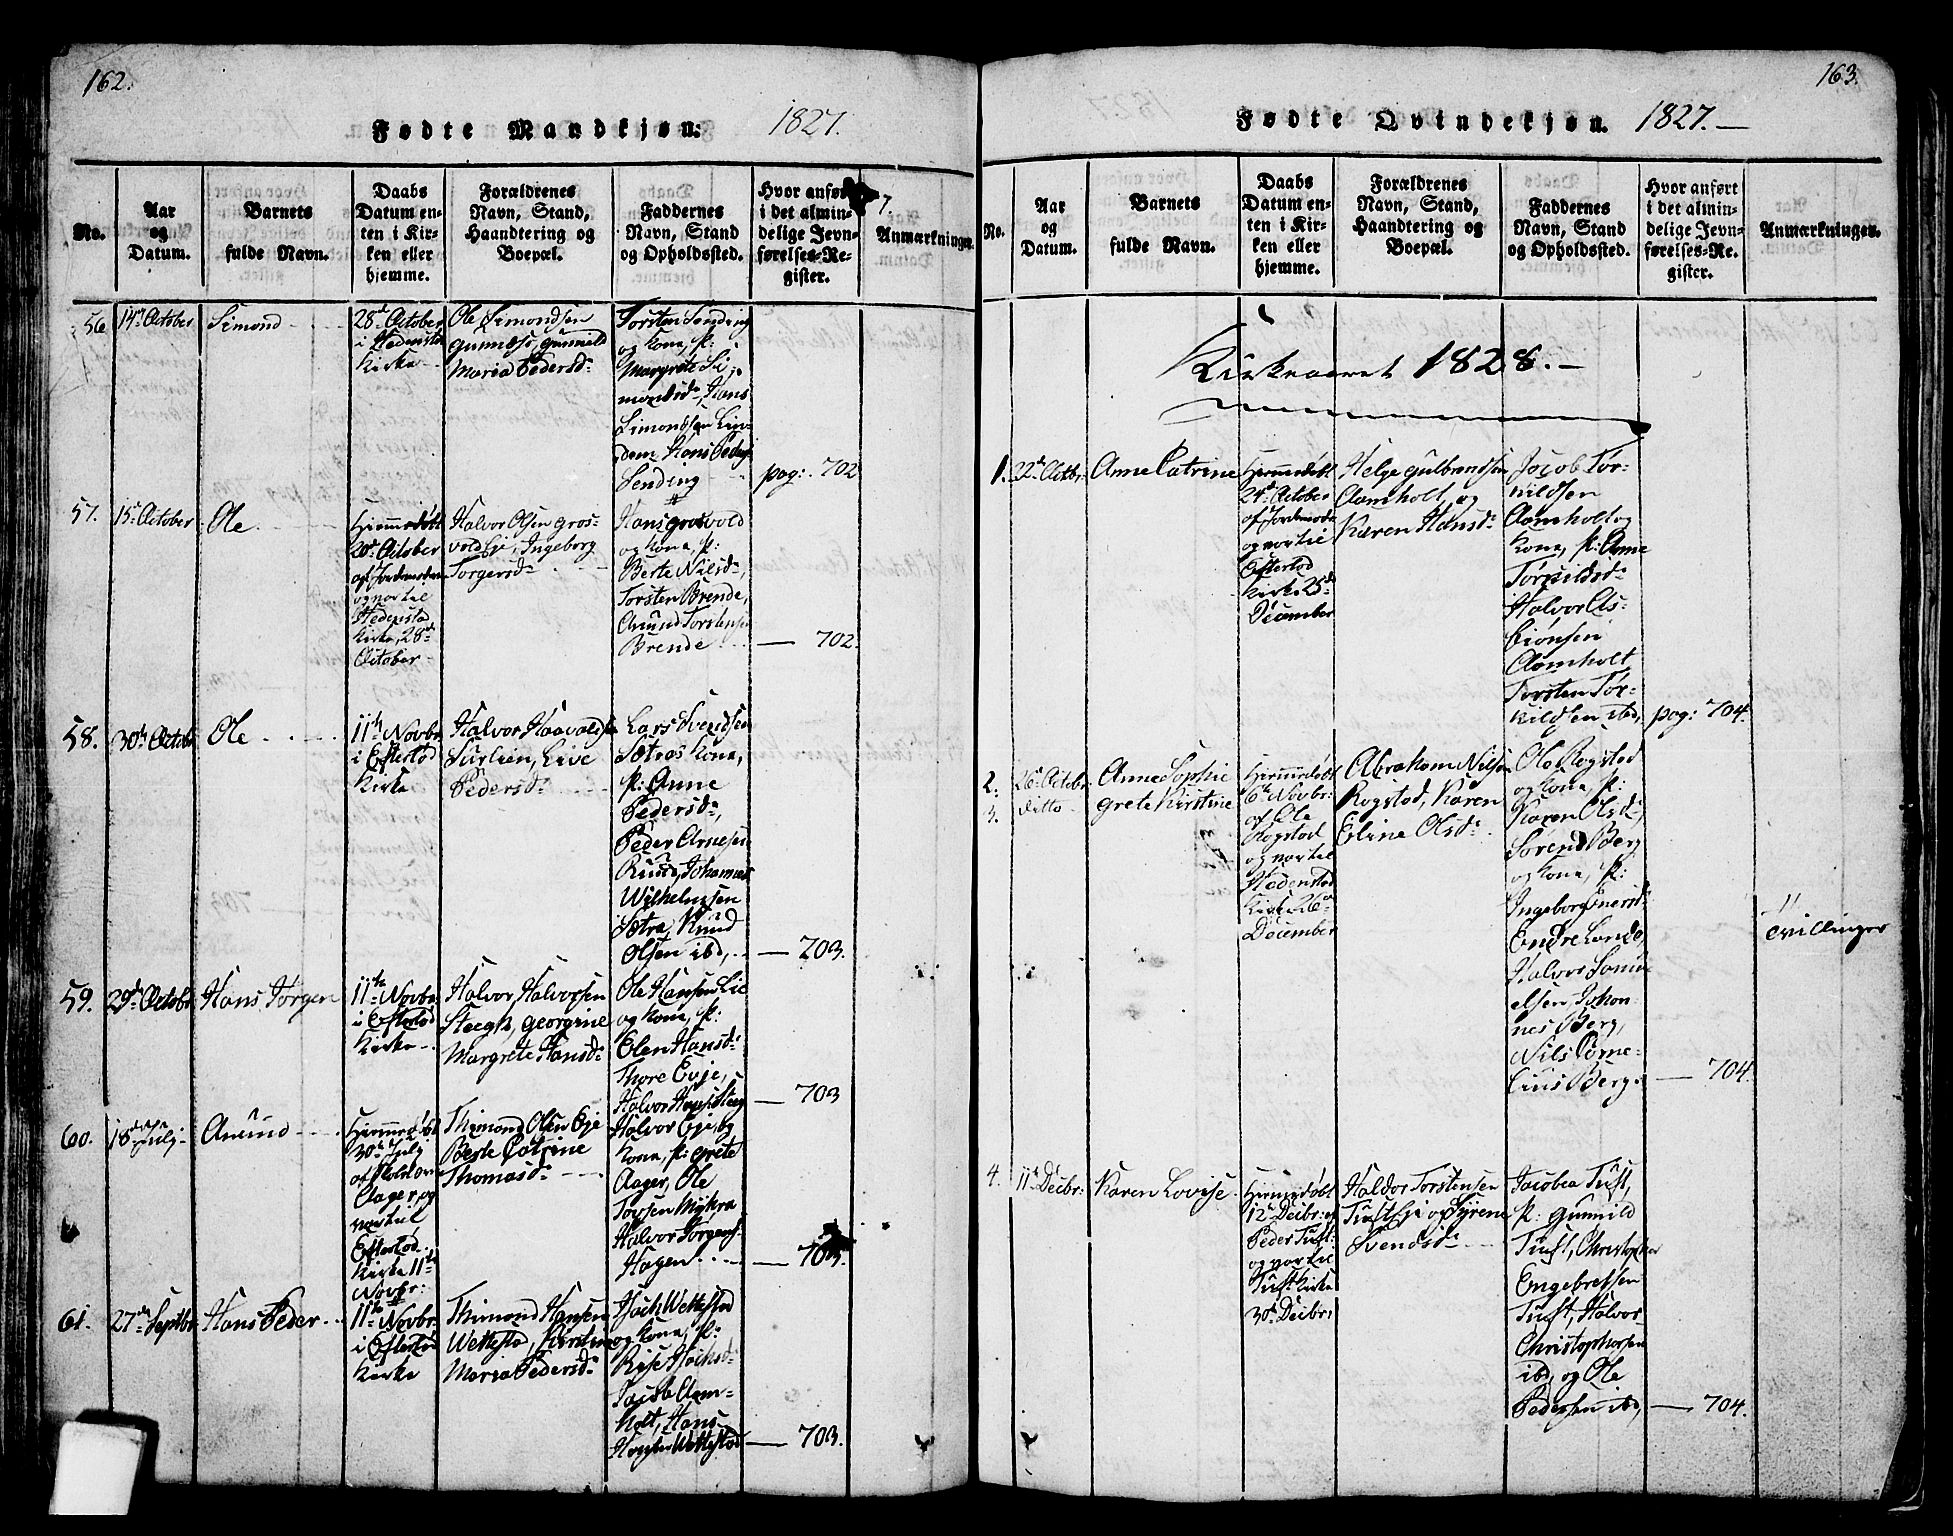 162.
Fødte Mandkjøn. 1827.
No.
Aar
og
Datum.
Barnets
fulde Navn.
Daabs
Datum en-
ten i Kir-
ken eller
hjemme.
Forældrenes
Navn, Stand,
Haandtering og
Boepæl.
Faddernes
Navn, Stand
og Opholdssted.
Hvor anført
i det almin-
delige Jevn-
førelses-Re-
gister.
Anmærkninger.
56
14de October
Simond
28de October
i Hedensta
Kirke
Ole Simondsen
Gunnild
Maria Pedersd:
Torsten Sending
og Kone, p:
Margrete Si
mondsd:, Hans
Simondsen Lin
dem Hans
Sending
pag: 702
57.
15de October
Ole
Hjemmedøbt
20de October
af Jordemoderen
og var til
Hedensta
Kirke, 28de
October
Halvor Olsen Gros-
vold Eje, Ingeborg
Torgersd:
Hans Grosvold
og Kone, p:
Berte Nilsd:,
Torsten Brende,
Amund Torstensen
Brende
702.
58.
30te Octobr
Ole
11te Novbr
i Eftelød
Kirke
Halvor Haavaldsen
Surlien, Live
Pedersd:
Lars Svendsen
Sætra og Kone,
p: Anne
Pedersd:,
Peder Arnesen
Ruud, Johannes
Wilhelmsen
Sætra, Knud
Olsen ibd,
703.
59.
29de Octobr
Hans Jørgen
11te Novbr
i Efteløød
Kirke
Halvor Halvorsen
Steegh, Georgine
Margrete Hansd:
Ole Hansen Lie
og Kone, p:
Elen Hansd:
Thore Evje,
Halvor Steeg
703
60.
18de July
Amund
Hjemmedøbt
30te July
af
Aager, og
var til
Efteløød
Kirke 11te
Novbr:
Thimond Olsen Eje
Berte Catrine
Thomasd:
Halvor Eje, og
Kone, p: Grete
Aager, Ole
Toresen Mykra
Halvor Jørgens:
Hagen
703.
61.
27de Septbr
Hans Peder
11te Novbr
i Efteløød
Kirke
Thimond Hansen
Wettestad, Kirstine
Maria Pedersd:
Hoch Wettestad
og Kone, p:
Rise Hochsd:
Jacob Aam-
holt, Hans
Wettestad
703.
163.
Fødte Qvindekjøn. 1827.
No.
Aar
og
Datum.
Barnets
fulde Navn.
Daabs
Datum en-
ten i Kir-
ken eller
hjemme.
Forældrenes
Navn, Stand,
Haandtering og
Boepæl.
Faddernes
Navn, Stand
og Opholdssted.
Hvor anført
i det almin-
delige Jevn-
førelses-Re-
gister.
Anmærkninger.
Kirkeaaret 1828.
1.
22de Octbr:
Anne Catrine
Hjemmedøbt
24de October
af Jordemoder
og var til
Efteløød
Kirke 25de
December
Helge Gulbrandsen
Aamholt, og
Karen Hansd:
Jacob Tør-
kildsen
Aamholt og
Kone, p: Anne
Tørkildsd:
Halvor As-
biønsen
Aamholt
Torsten Tør-
kildsen ibd,
pag: 704.
2.
26de Octobr
Anne Sophie
3.
ditto
Grete Kirstine
Hjemmedøbt
6te Novbr:
af Ole
Rogstad
og var til
Hedenstad
Kirke 26de
December
Abraham Nilsen
Rogstad, Karen
Eline Olsd:
Ole Rogstad
og Kone, p:
Karen Olsd:,
Sørend Berg
og Kone, p:
Ingeborg Enersd:
Endre Lande,
Halvor Samu
elsen, Johan-
nes Berg,
Nils Corne-
lius Berg.
704.
Tvillinger
4.
11te Decbr:
Karen Lovise
Hjemmedøbt
12te Decbr: af
Peder Tuft:
og var til
Tuft Kirke
30te Decbr:
Haldor Torstensen
Tuft Eje og Syrene
Svendsd:
Jacobea Tuft,
p: Gunnild
Tuft, Christopher
Engebretsen
Tuft, Halvor
Christophersen
ibd, og Ole
Pedersen ibd,
704.